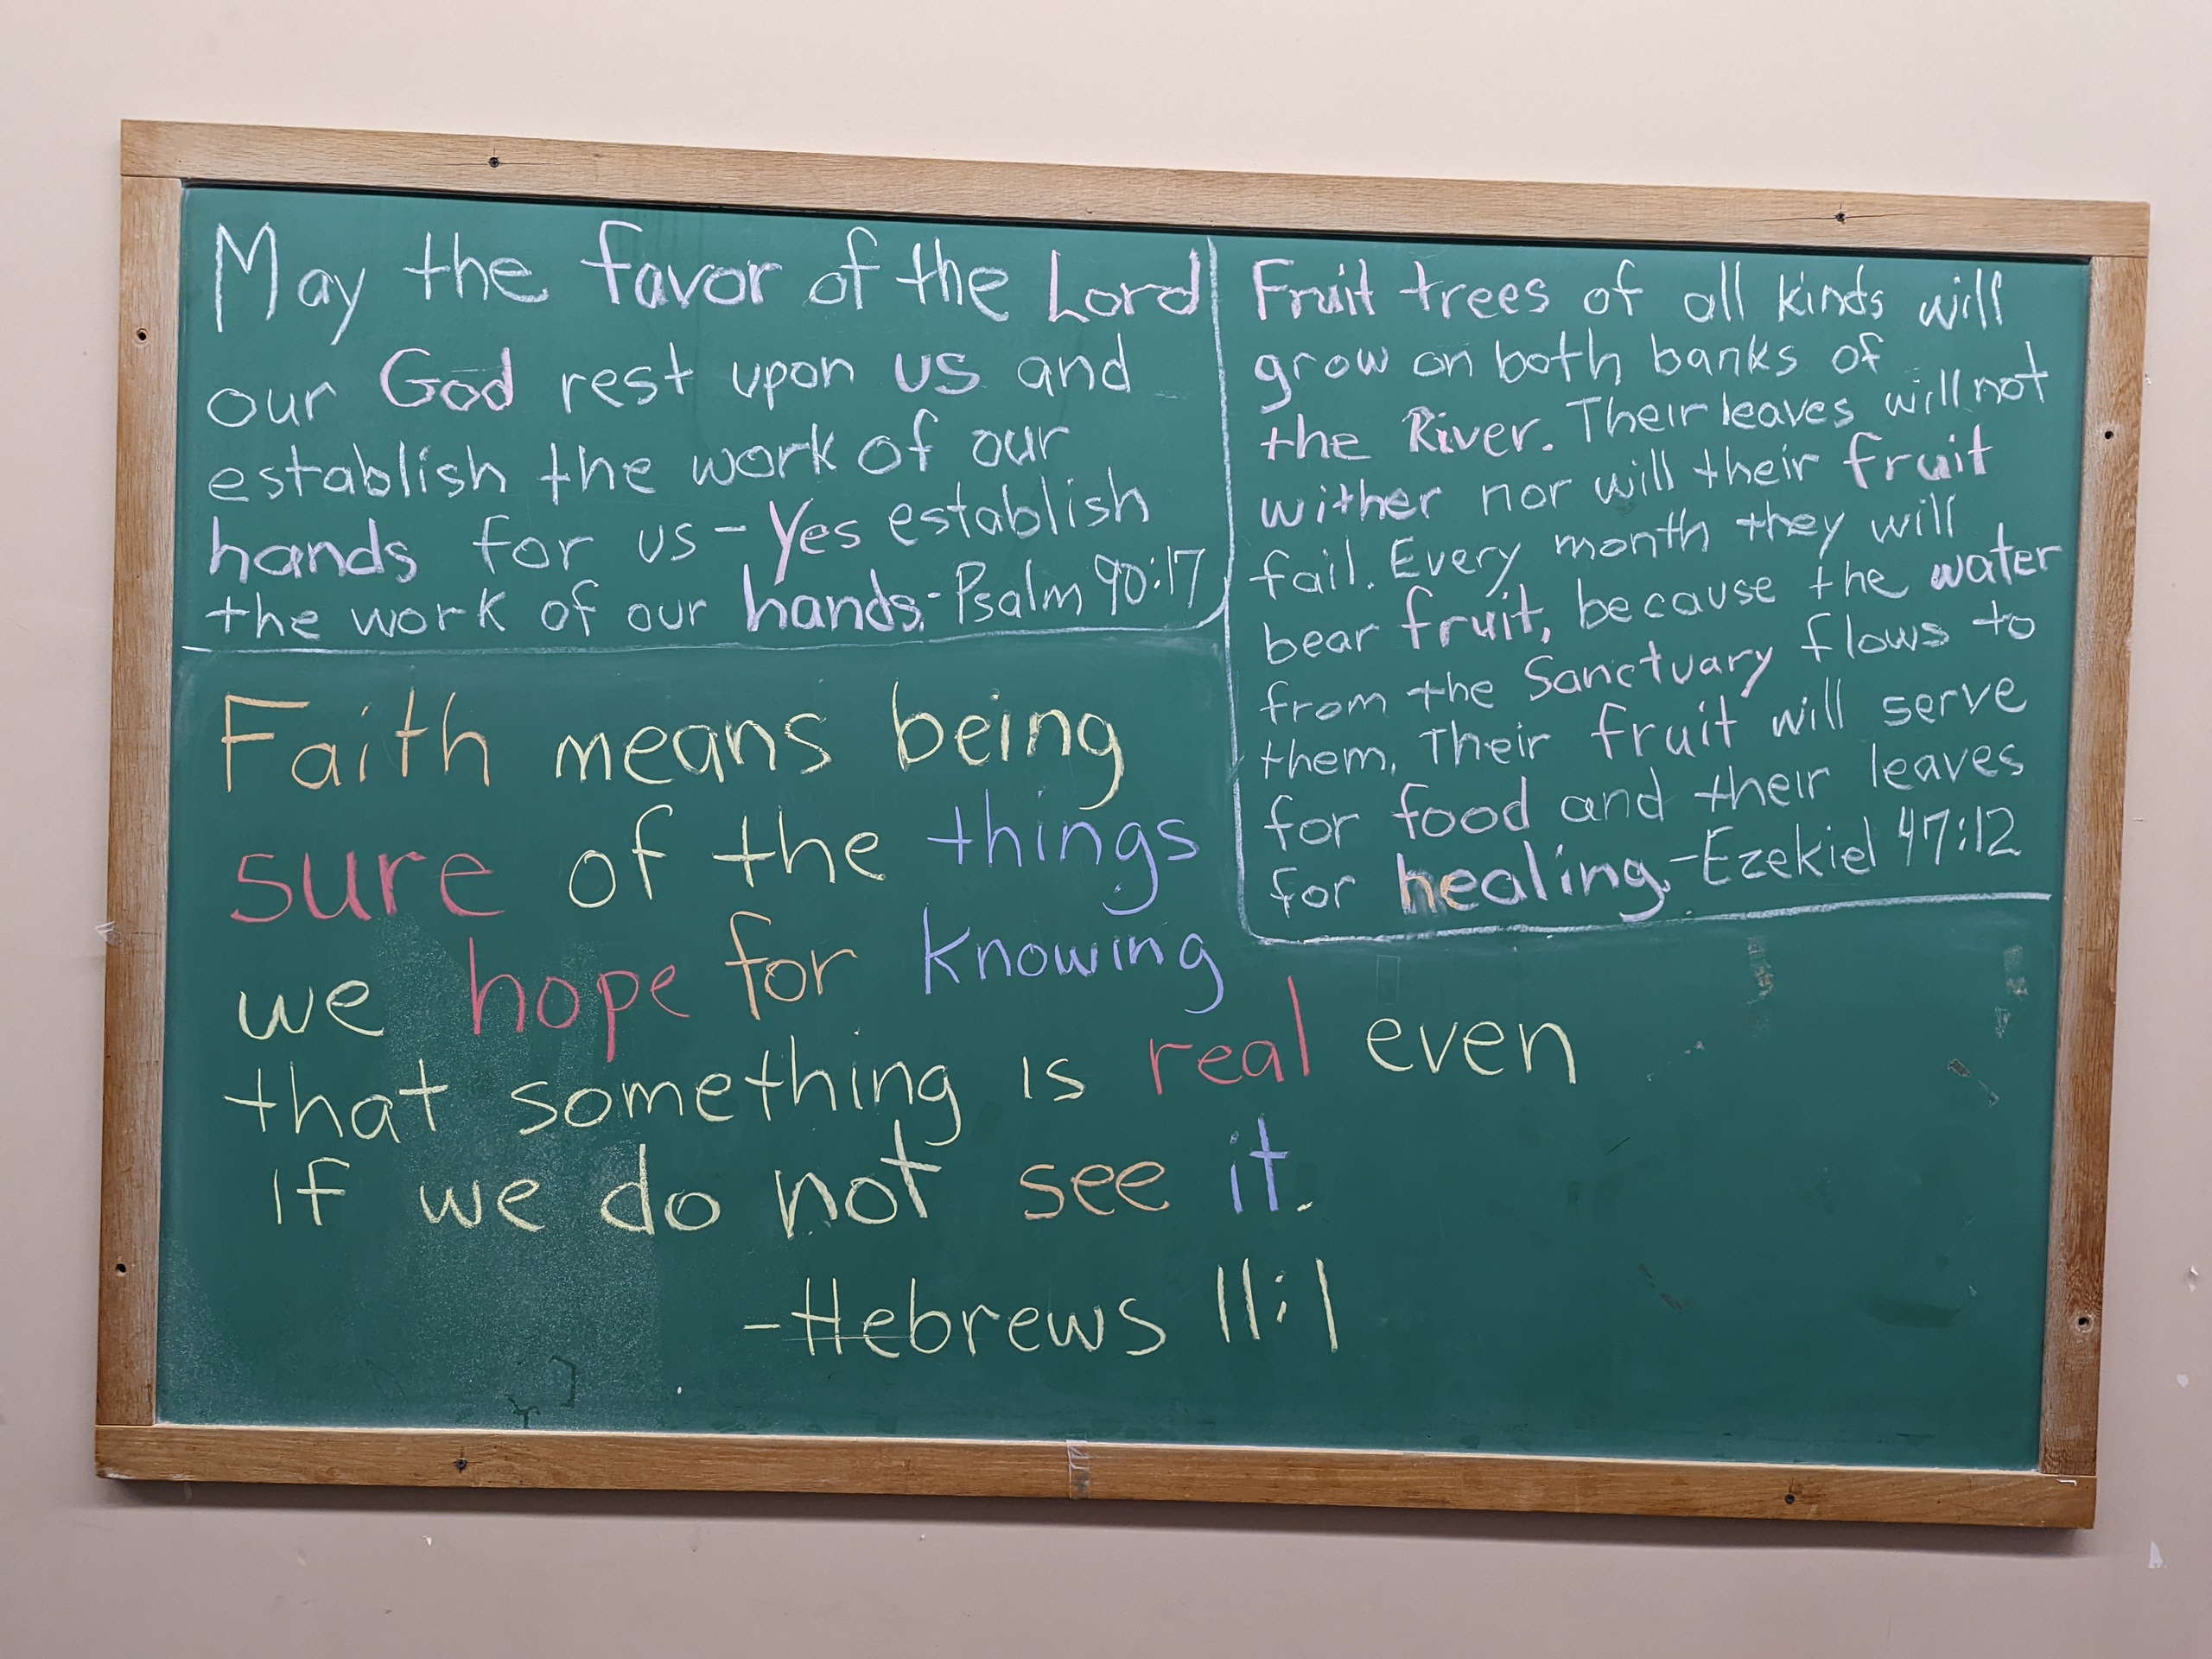 May the favor of the Lord
our God rest upon us and
establish the work of our
hands for us - Yes establish
the work of our hands. - Psalm 90:17
Fruit trees of all kinds will
grow on both banks of
the River. Their leaves will not
wither nor will their fruit
fail. Every month they will
bear fruit, because the water
from the Sanctuary flows to
them. Their fruit will serve
for food and their leaves
for healing. - Ezekiel 47:12
Faith means being
sure of the things
we hope for knowing
that something is real even
if we do not see it.
- Hebrews 11:1